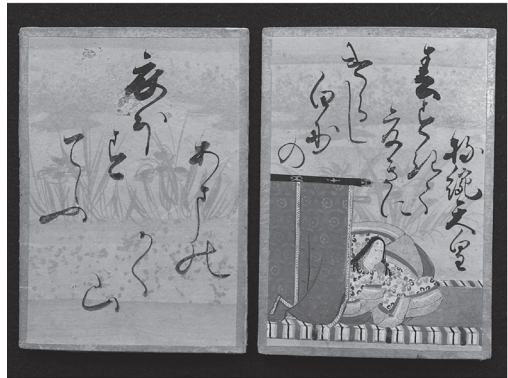 持統天皇
春すきて
夏きに
けらし
白妙
の
衣ほ
す
てふ
あまの
かく
山